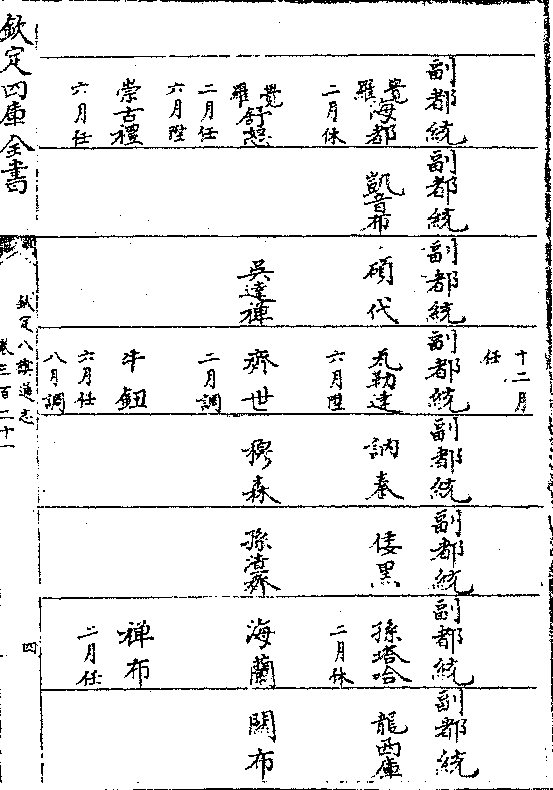 十二月
任
副都統
副都統
副都統
副都統
副都統
副都統
副都統
副都統
覺羅海都
凱音布
碩代
瓦勒達
訥秦
倭黑
孫塔哈
龍西庫
二月休
六月陞
二月休
覺羅舒恕
吳達禪
齊世
穆森
孫渣齊
海蘭
關布
二月任
二月調
六月陞
崇古禮
牛鈕
禅布
六月任
六月任
二月任
八月調
欽定四庫全書
欽定八旗通志
卷三百二十一
四